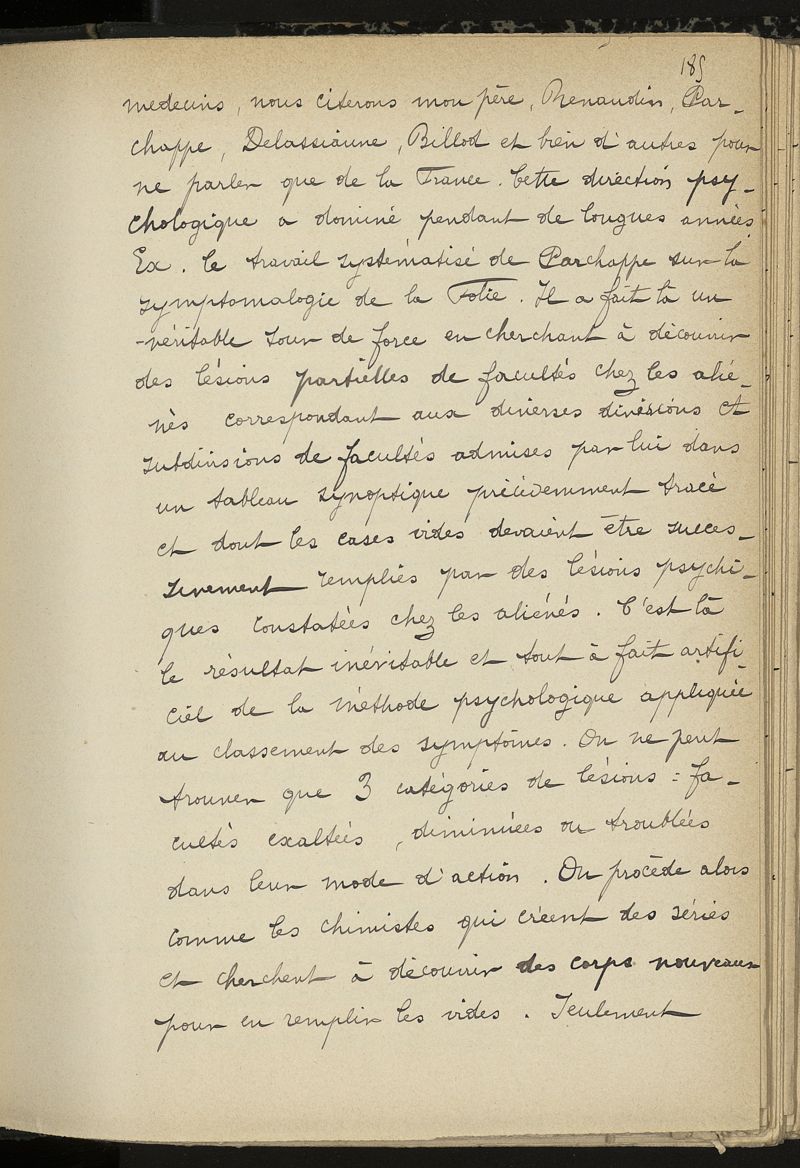 185
medecins, nous citerons mon père, Renaudin, Par-
chappe, Delassiaune, Billod et bien d'autres pour
ne parler que de la France. Cette direction psy-
chologique a dominé pendant de longues années
Ex. le travail systématisé de Parchappe sur la
symptomalogie de la Folie. Il a fait là un
-véritable tour de force en cherchant à découvrir
des lésions partielles de facultés chez les alié-
nés correspondant aux diverses divisions et
subdivisions de facultés admises par lui dans
un tableau synoptique précédemment tracé
et dont les cases vides devaient être succes-
sivement remplies par des lésions psychi-
ques constatées chez les aliénés. C'est là
le résultat inévitable et tout à fait artifi-
ciel de la méthode psychologique appliquée
au classement des symptômes. On ne peut
trouver que 3 catégories de lésions : fa-
cultés exaltées, diminuées ou troublées
dans leur mode d'action. On procède alors
comme les chimistes qui créent des séries
et cherchent à découvrir des corps nouveaux
pour en remplir les vides. Seulement